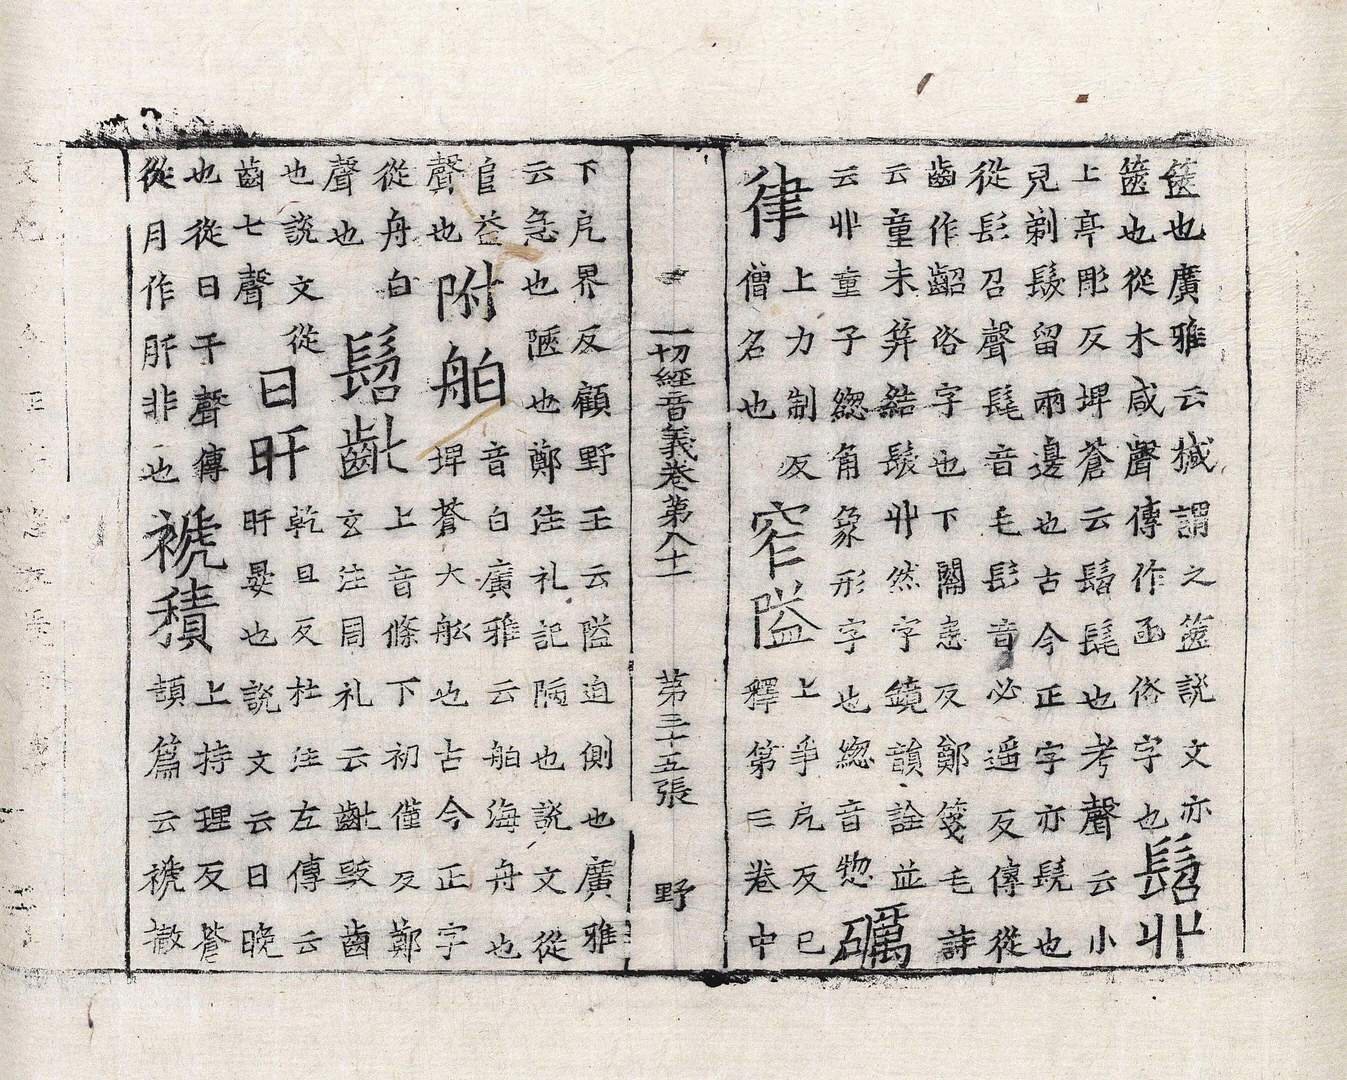 篋也廣雅云椷謂之篋說文亦
篋也從木咸聲傳作函俗字也髫丱
上亭彫反埤蒼云髫髦也考聲云小
兒剃髮留兩邊也古今正字亦髡也
從髟召聲髦音毛髟音必遥反傳從
齒作齠俗字也下關患反鄭箋毛詩
云童未笄結髮丱然字鏡韻詮並
云丱童子緫角象形字也緫音惣礪
律上力制反窄隘上爭戹反巳
僧名也釋第三卷中
一切經音義卷第八十一　第三十五張　野
下戹界反顧野王云隘迫側也廣雅
云急也陋也鄭注礼記陋也說文從
𨸏益聲也附舶音白廣雅云舶海舟也
埤蒼大舩也古今正字
從舟白聲也髫齓上音條下初僅反鄭
玄注周礼云齓毀齒
也說文從齒七聲日旰乾旦反杜注左傳云
旰晏也說文云日晚
也從日干聲傳從月作肝非也褫積上持理反蒼
頡篇云褫撤